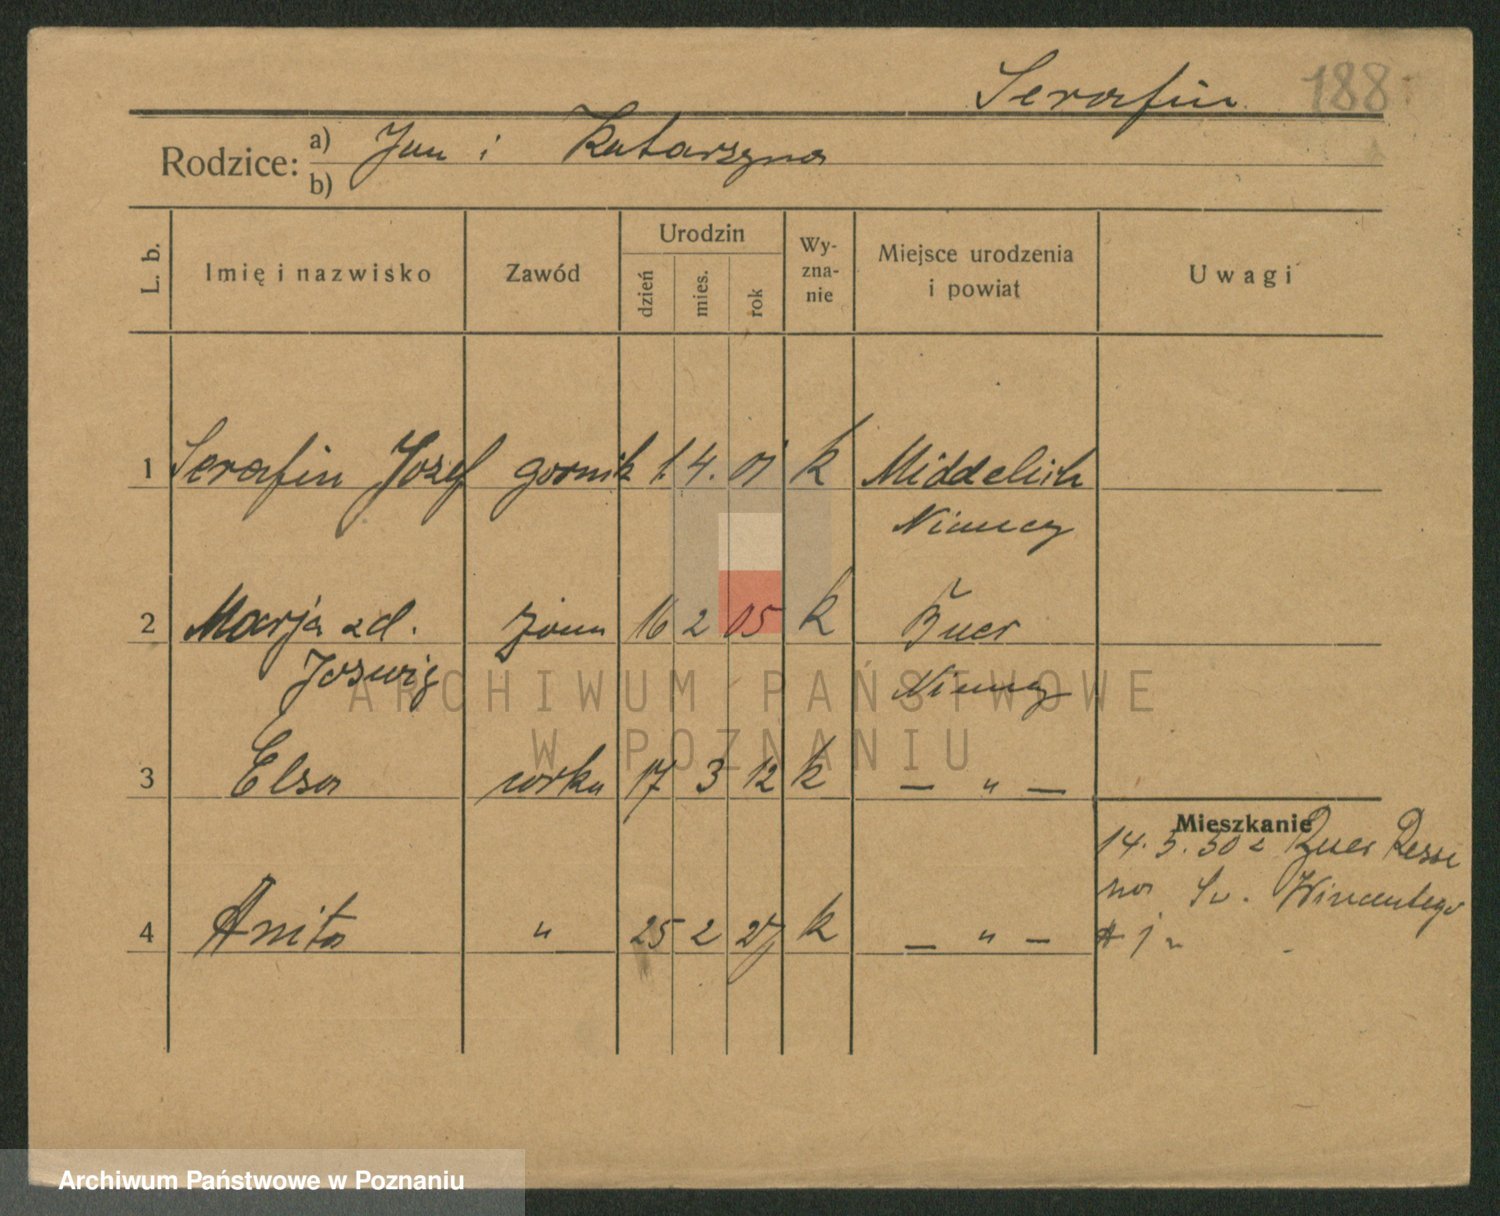 Serafin 188
Rodzice: a) Jan i Katarzyna
b)
L. b. Imię i nazwisko Zawód Urodzin dzień mies. rok Wy-zna-nie Miejsce urodzenia i powiat Uwagi
1 Serafin Jozef gornik 1. 4. 01 k Middelich
Niemcy
2 Marja zd. żona 16 2 05 k Buer
Joswig Niemcy
3 Elsa corka 17 3 12 k — " —
Mieszkanie
14. 5. 30 z Buer Resse
na Sw. Wincentego
4 Anita " 25 2 27 k — " —
ARCHIWUM PAŃSTWOWE
W POZNANIU
Archiwum Państwowe w Poznaniu